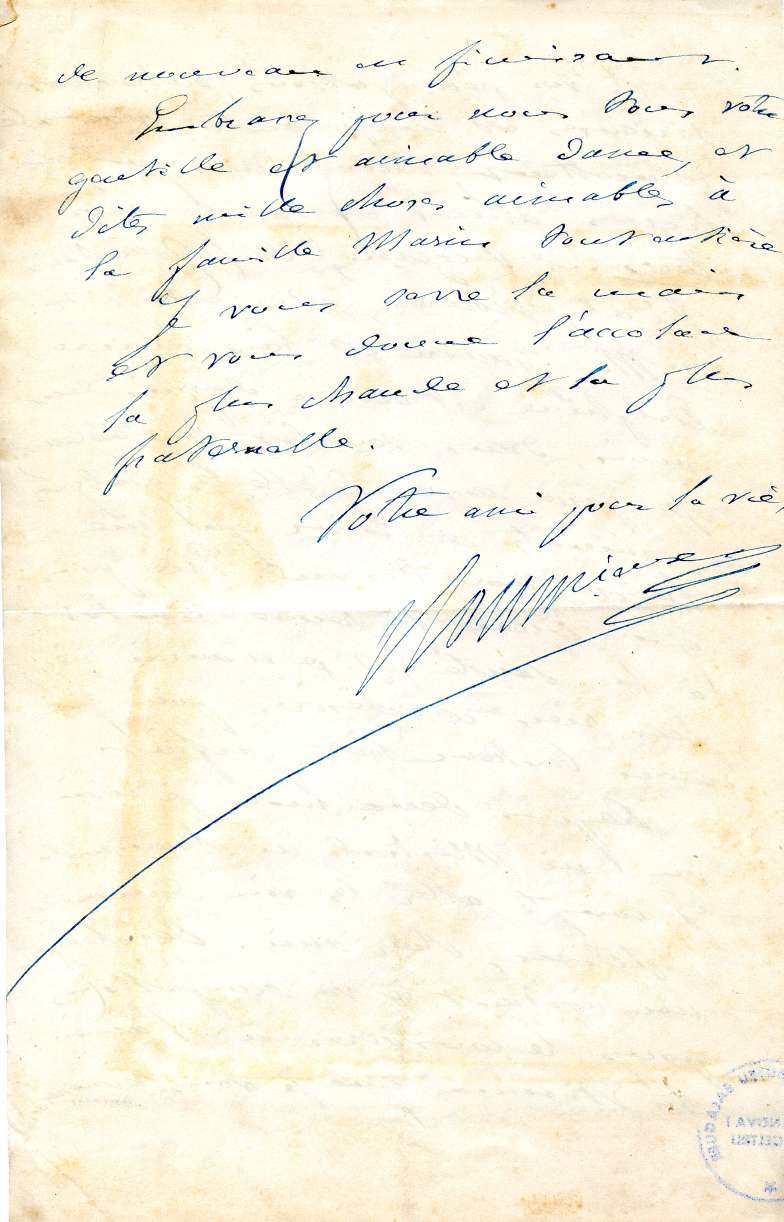 de nouveau en finissant.
Embrassez pour nous tous votre
gentille et aimable dame, et
dites mille choses aimables à
la famille Marius
Je vous serre la main
et vous donne l'accolade
la plus chaude et la plus
fraternelle.
Votre ami pour la vie,